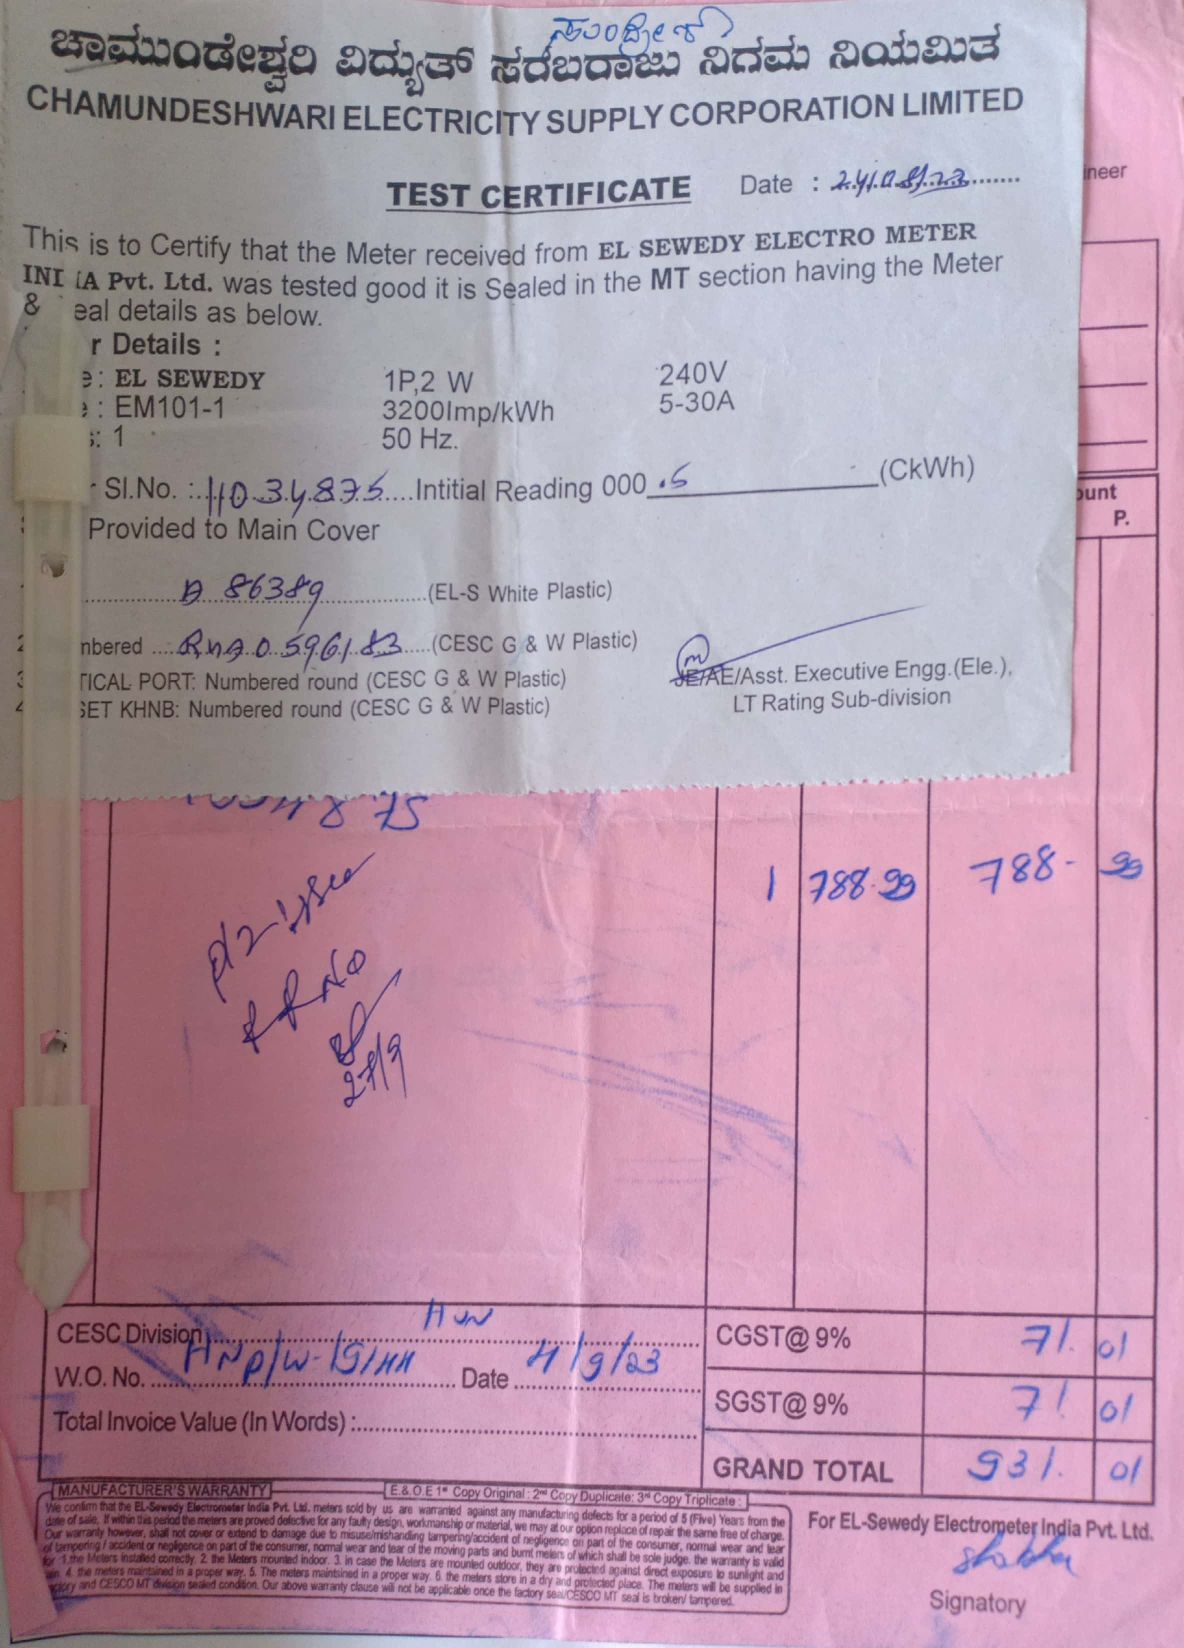 ಚಾಮುಂಡೇಶ್ವರಿ ವಿದ್ಯುತ್ ಸರಬರಾಜು ನಿಗಮ ನಿಯಮಿತ
CHAMUNDESHWARI ELECTRICITY SUPPLY CORPORATION LIMITED
ineer
TEST CERTIFICATE Date : 24/08/23
This is to Certify that the Meter received from EL SEWEDY ELECTRO METER
INDIA Pvt. Ltd. was tested good it is Sealed in the MT section having the Meter
& eal details as below.
r Details :
e : EL SEWEDY 1P,2 W 240V
e : EM101-1 3200Imp/kWh 5-30A
s: 1 50 Hz.
r Sl.No. : 11034875 Intitial Reading 000 .5 (CkWh)
Provided to Main Cover
ount
P.
86389 (EL-S White Plastic)
mbered 0596183 (CESC G & W Plastic)
TICAL PORT: Numbered round (CESC G & W Plastic)
SET KHNB: Numbered round (CESC G & W Plastic)
JE/AE/Asst. Executive Engg.(Ele.),
LT Rating Sub-division
1 788.99 788- 99
RRNo
27/9
CESC Division HUN CGST@ 9% 71. 01
W.O. No. Date 4/9/23
SGST@ 9% 71 01
Total Invoice Value (In Words) :
GRAND TOTAL 931. 01
MANUFACTURER'S WARRANTY E.& O.E 1st Copy Original : 2nd Copy Duplicate: 3rd Copy Triplicate :
We confirm that the EL-Sewedy Electrometer India Pvt. Ltd. meters sold by us are warranted against any manufacturing defects for a period of 5 (Five) Years from the
date of sale. If within this period the meters are proved defective for any faulty design, workmanship or material, we may at our option replace of repair the same free of charge.
Our warranty however, shall not cover or extend to damage due to misuse/mishandling tampering/accident of negligence on part of the consumer, normal wear and tear
of tampering / accident or negligence on part of the consumer, normal wear and tear of the moving parts and burnt meters of which shall be sole judge. the warranty is valid
for 1.the Meters installed correctly. 2. the Meters mounted indoor. 3. in case the Meters are mounted outdoor, they are protected against direct exposure to sunlight and
ain. 4. the meters maintained in a proper way. 5. The meters maintsined in a proper way. 6. the meters store in a dry and protected place. The meters will be supplied in
ctory and CESCO MT division sealed condition. Our above warranty clause will not be applicable once the factory seal/CESCO MT seal is broken/ tampered.
For EL-Sewedy Electrometer India Pvt. Ltd.
Shobha
Signatory